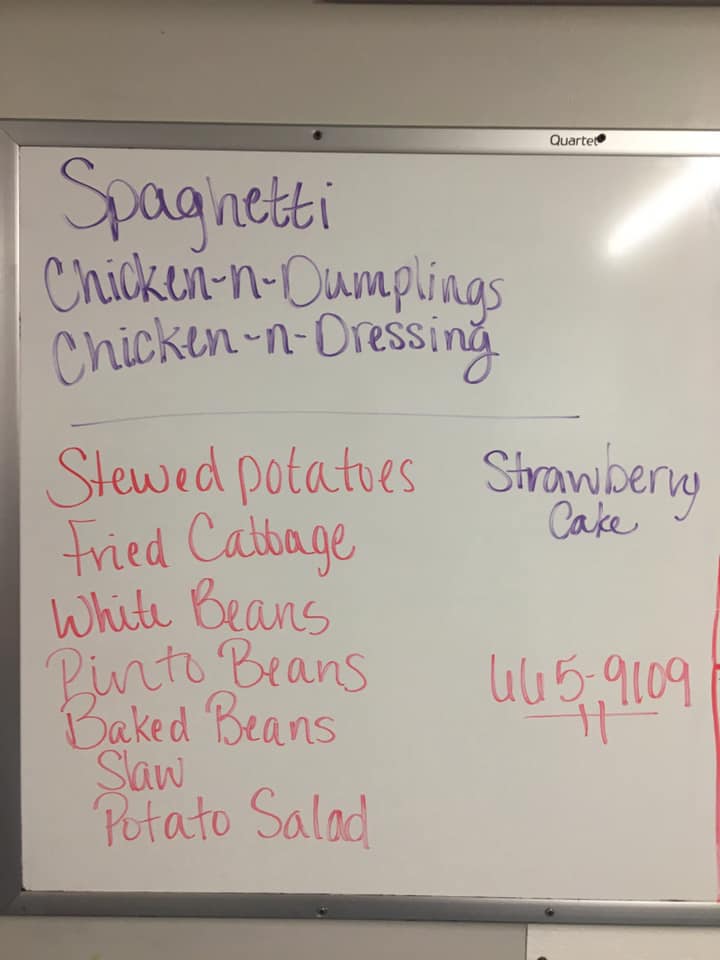 Quartet
Spaghetti
Chicken-n-Dumplings
Chicken-n-Dressing
Stewed potatoes
Fried Cabbage
White Beans
Pinto Beans
Baked Beans
Slaw
Potato Salad
Strawberry
Cake
665-9109